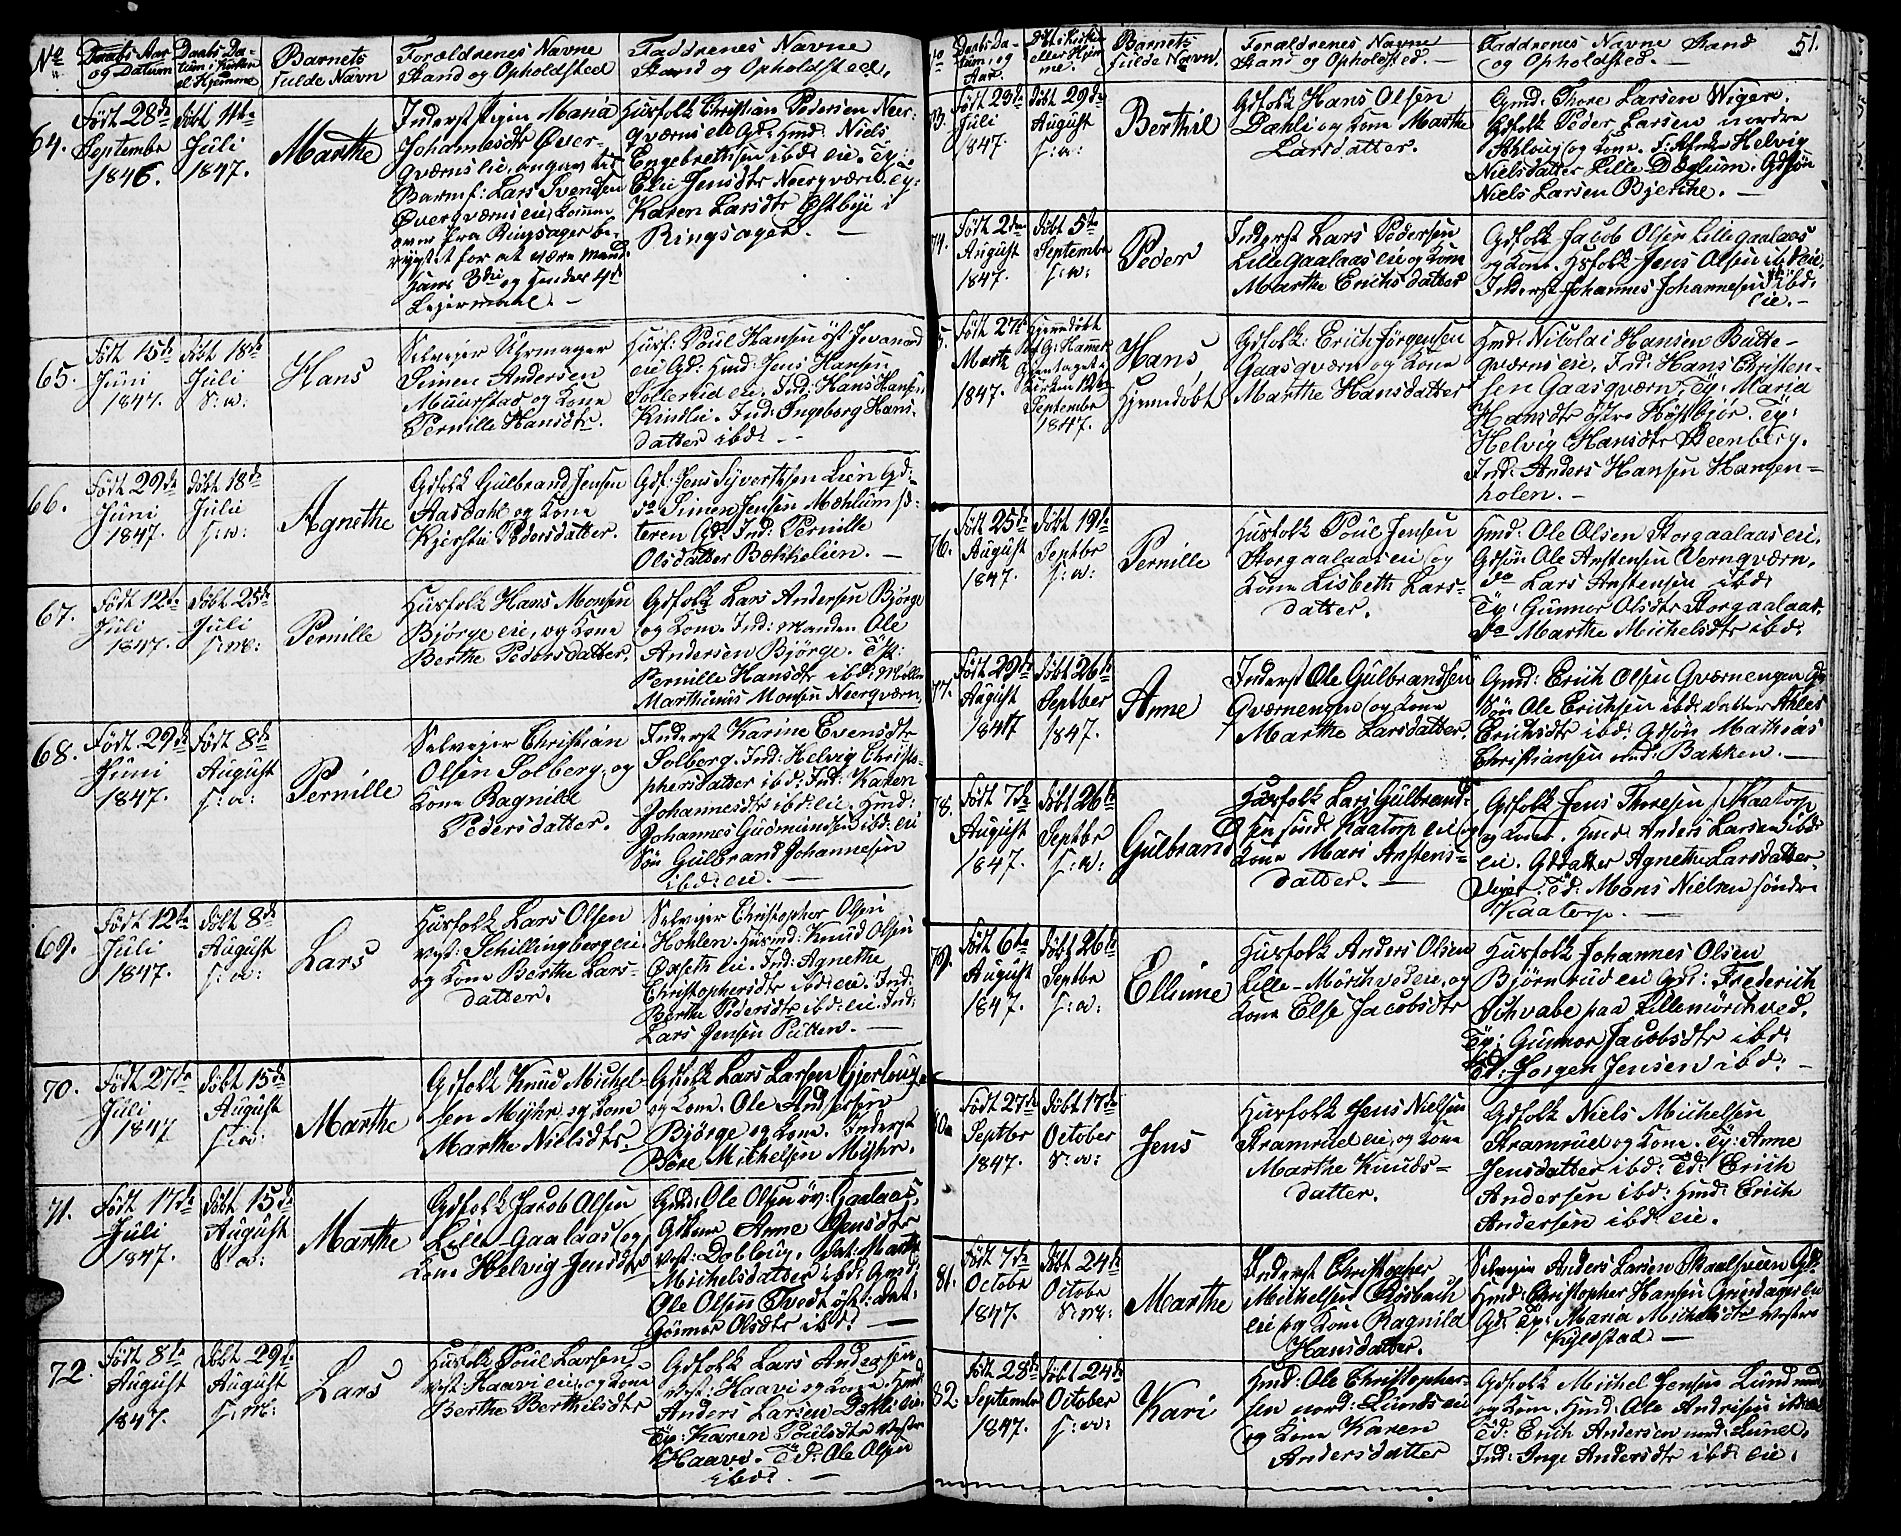 No
Daabs Aar og Datum
Daabs Datum i Kirken el. Hjemme
Barnets fulde Navn
Forældrenes Navne Stand og Opholdsted
Faddrenes Navne Stand og Opholdsted.
64.
Født 28de Septembr 1846.
Døbt 11te Juli 1847.
Marthe
Inderst Pigen Maria
Johannesdtr Øver-
qværns eie, angav til
Barnef: Lars Svendsen
Øverqværns eie,
over fra Ringsager be-
rygtet for at være
Hans 3die og hendes
Leiermaal. -
Husfolk Christian Pedersen Neer-
qværns eie Gd: Hmd: Niels
Engebrethsen ibd: eie. Tp:
Elie Jensdtr Neerqværn. Tp:
Karen Larsdtr Estbye i
Ringsager. -
65.
Født 15de Juni 1847.
Døbt 18de Juli S: w:
Hans
Selveier Uhrmager
Simen Andersen
Muurstad og Kone
Pernille Hansdtr.
Husf: Poul Hansen øst:
eie Gd: Hmd: Jens Hansen
eie. Ind: Hans Hansen
Ind: Ingeborg Hans-
datter ibd: -
66.
Født 29de Juni 1847.
Døbt 18de Juli S: w:
Agnethe
Gdfolk Gulbrand Jensen
Aasdahl og Kone
Kjersti Pedersdatter.
Gdf: Jens Syvertsen Lien Gd:
do Simen Jensen Mæhlum
Ind: Pernille
Olsdatter Bækkelien. -
67.
Født 12te Juli 1847.
Døbt 25de Juli
Pernille
Husfolk Hans Monsen
Bjørge eie, og Kone
Berthe Pedersdatter.
Gdfolk Lars Andersen Bjørge
og Kone. Ind: Manden Ole
Andersen Bjørge. Tp:
Pernille Hansdtr ibd:
Marthinus Monsen Neerqværn.
68.
Født 29de Juni 1847.
Født 8de August S: w:
Pernille
Selveier Christian
Olsen Solberg, og
Kone Ragnild
Pedersdatter.
Inderst Karine Evensdtr
Solberg. Ind: Helvig Christo-
phersdatter ibd: Ind: Karen
Johannesdtr ibd: eie. Hmd:
Johannes Gudmundsen ibd: eie
Søn Gulbrand Johannesen
ibd: eie. -
69.
Født 12te Juli 1847.
Døbt 8de August S: w:
Lars
Husfolk Lars Olsen
vest: Schillingberg eie
og Kone Berthe Lars-
datter.
Selveier Christopher Olsen
Hohlen. Husmd: Knud Olsen
Oxseth eie. Ind: Agnethe
Christophersdtr ibd: eie. Ind:
Berthe Pedersdtr ibd: eie. Ind:
Lars Jensen Putten. -
70.
Født 27de Juli 1847
Døbt 15de August S: w:
Marthe
Gdfolk Knud Michel-
sen Myhr og Kone
Marthe Nielsdtr.
Gdfolk Lars Larsen
og Kone. Ole Andersen
Bjørge og Kone. Inderst
Michelsen Myhr.
71.
Født 17de Juli 1847.
Døbt 15de August S: w:
Marthe
Gdfolk Jacob Olsen
Lille-Gaalaas, og
Kone Helvig Jensdtr
Gmd: Ole Olsen øv: Gaalaas.
Gdkone Anne Jensdtr
vest: Dat: Marthe
Michelsdatter ibd: Gmd:
Ole Olsen Tvedt øst: Dat:
Olsdtr ibd: -
72.
Født 8de August 1847.
Døbt 29de August
Lars
Husfolk Poul Larsen
vest: Haavi eie, og Kone
Berthe Berthilsdtr
Gdfolk Lars Andersen
vest: Haavi og Kone. Hmd:
Anders Larsen Dæhli eie.
Tp: Karen Poulsdtr vestre
Haavi. Td: Ole Olsen
ibd: -
51.
Daabs Da-
tum, og
Aar.
Barnets fulde Navn.
Forældrenes Navne Stand og Opholdsted. -
Faddrenes Navne Stand og Opholdsted. -
73.
Født 23de Juli 1847.
Døbt 29de August S: w:
Berthil
Gdfolk Hans Olsen
Dæhli og Kone Marthe
Larsdatter.
Gmd: Thore Larsen Wiger.
Gdfolk Peder Larsen nordre
og Kone. Helvig
Nielsdatter Lille Dæglum. Gdsøn
Niels Larsen Bjerke. -
74.
Født 2den August 1847.
Døbt 5te Septembr S: w:
Peder
Inderst Lars Pedersen
Lille Gaalaas eie og Kone
Marthe Erichsdatter
Gdfolk Jacob Olsen Lille Gaalaas
og Kone. Hsfolk Jens Olsen ibd: eie.
Inderst Johannes Johannesen ibd:
eie. -
75.
Født 27de Marts 1847.
Hjemdøbt
Kirken 12te Septembr 1847.
Hans
Hjemdøbt
Gdfolk: Erich Jørgensen
Gaasqværn og Kone
Marthe Hansdatter
Hmd: Nicolai Hansen Batte-
qværns eie. Ind: Hans Christen-
sen Gaasqværn, Tp: Maria
Hansdtr østre Tp:
Helvig Hansdtr Steenberg.
Ind: Anders Hansen Haugen-
holen. -
76.
Født 25de August 1847.
Døbt 19de Septbr S: w:
Pernille
Husfolk Poul Jensen
Storgaalaas eie, og
Kone Lisbeth Lars-
datter.
Hmd: Ole Olsen Storgaalaas eie.
Gdsøn Ole Anstensen Vernqværn.
do Lars Anstensen ibd:
Tp: Gunnor Olsdtr Storgaalaas.
do Marthe Michelsdtr ibd:
77.
Født 29de August 1847
Døbt 26te Septber 1847.
Anne
Inderst Ole Gulbrandsen
Qværnengen, og Kone
Marthe Larsdatter.
Gmd: Erich Olsen Qværnengen Gd:
Søn Ole Erichsen ibd: datter
Erichsdtr ibd: Gdsøn Mathias
Christiansen Bakken. -
78.
Født 7de August 1847.
Døbt 26te Septbr S: w:
Gulbrand
Husfolk Lars Gulbrand-
sen sønd: Kaatorp eie, og
Kone Mari Anstens-
datter. -
Gdfolk Jens Thoresen s: Kaatorp
og Kone. Hmd: Anders Larsen ibd:
eie. Gddatter Agnethe Larsdatter
Viger. Td: Mons Nielsen søndre
Kaatorp. -
79.
Født 6te August 1847.
Døbt 26te Septbr S: w:
Ellinne
Husfolk Anders Olsen
Lille-Mørchved eie, og
Kone Else Jacobsdtr
Husfolk Johannes Olsen
Bjørnrud eie Gd: Frederich
Schvabe paa Lillemørchved.
Tp: Gunnor Jacobsdtr ibd:
Td: Jørgen Jensen ibd: -
80.
Født 27de Septbr 1847.
Døbt 17de October S: w:
Jens
Husfolk Jens Nielsen
Stramrud eie, og Kone
Marthe Knuds-
datter.
Gdfolk Niels Michelsen
Stramrud og Kone. Tp: Anne
Jensdatter ibd: Td: Erich
Andersen ibd: Hmd: Erich
Andersen ibd: eie.
81.
Født 7de Octobr 1847.
Døbt 24de Octobr
Marthe
Inderst Christopher
Michelsen Rosbach
eie og Kone Ragnild
Hansdatter.
Selveier Anders Larsen Skaalsveen Gd:
Hmd: Christopher Hansen eie
Gd: Tp: Maria Michelsdtr vestre
Kylstad -
82.
Født 28de September 1847.
Døbt 24de October S: w:
Kari
Hmd: Ole Christopher-
sen nord: Lunds eie
og Kone Karen
Andersdatter
Gdfolk Michel Jensen Lund nord:
og Kone. Hmd: Ole Andersen ibd: eie
Td: Erich Andersen nord: Lund.
Ind: Inge Andersdtr ibd: eie.